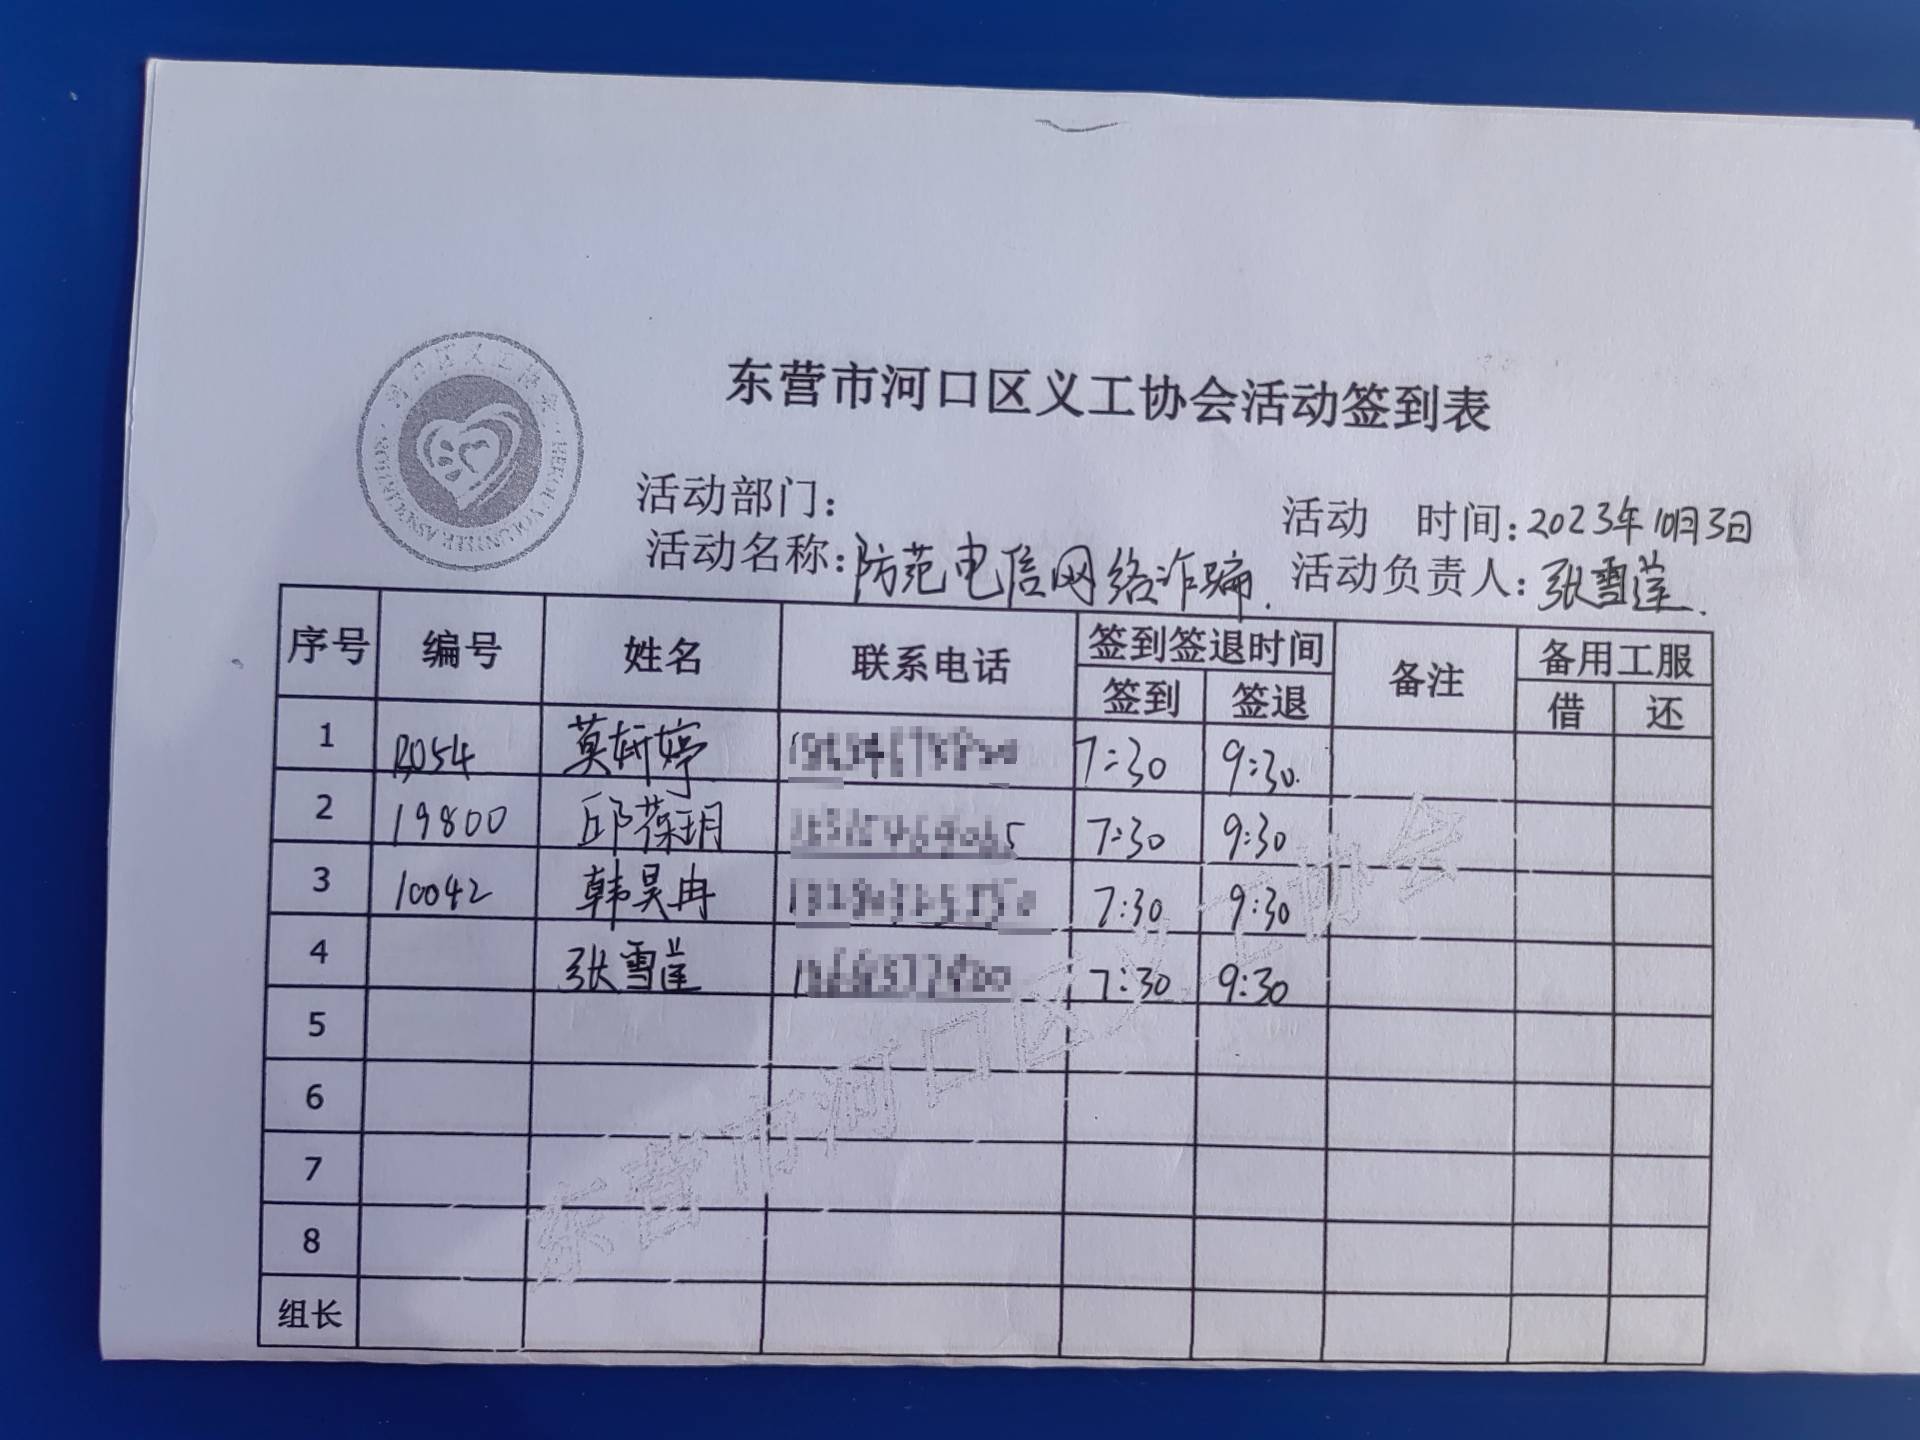 东营市河口区义工协会活动签到表
活动部门：
活动 时间：2023年10月3日
活动名称：防范电信网络诈骗.
活动负责人：张雪莲.
序号 编号 姓名 联系电话 签到签退时间 签到 签退 备注 备用工服 借 还
1 莫妍婷 7:30 9:30.
2 19800 邱葆玥 7:30 9:30
3 10042 韩昊冉 7:30 9:30
4 张雪莲 7:30 9:30
5
6
7
8
组长
东营市河口区义工协会